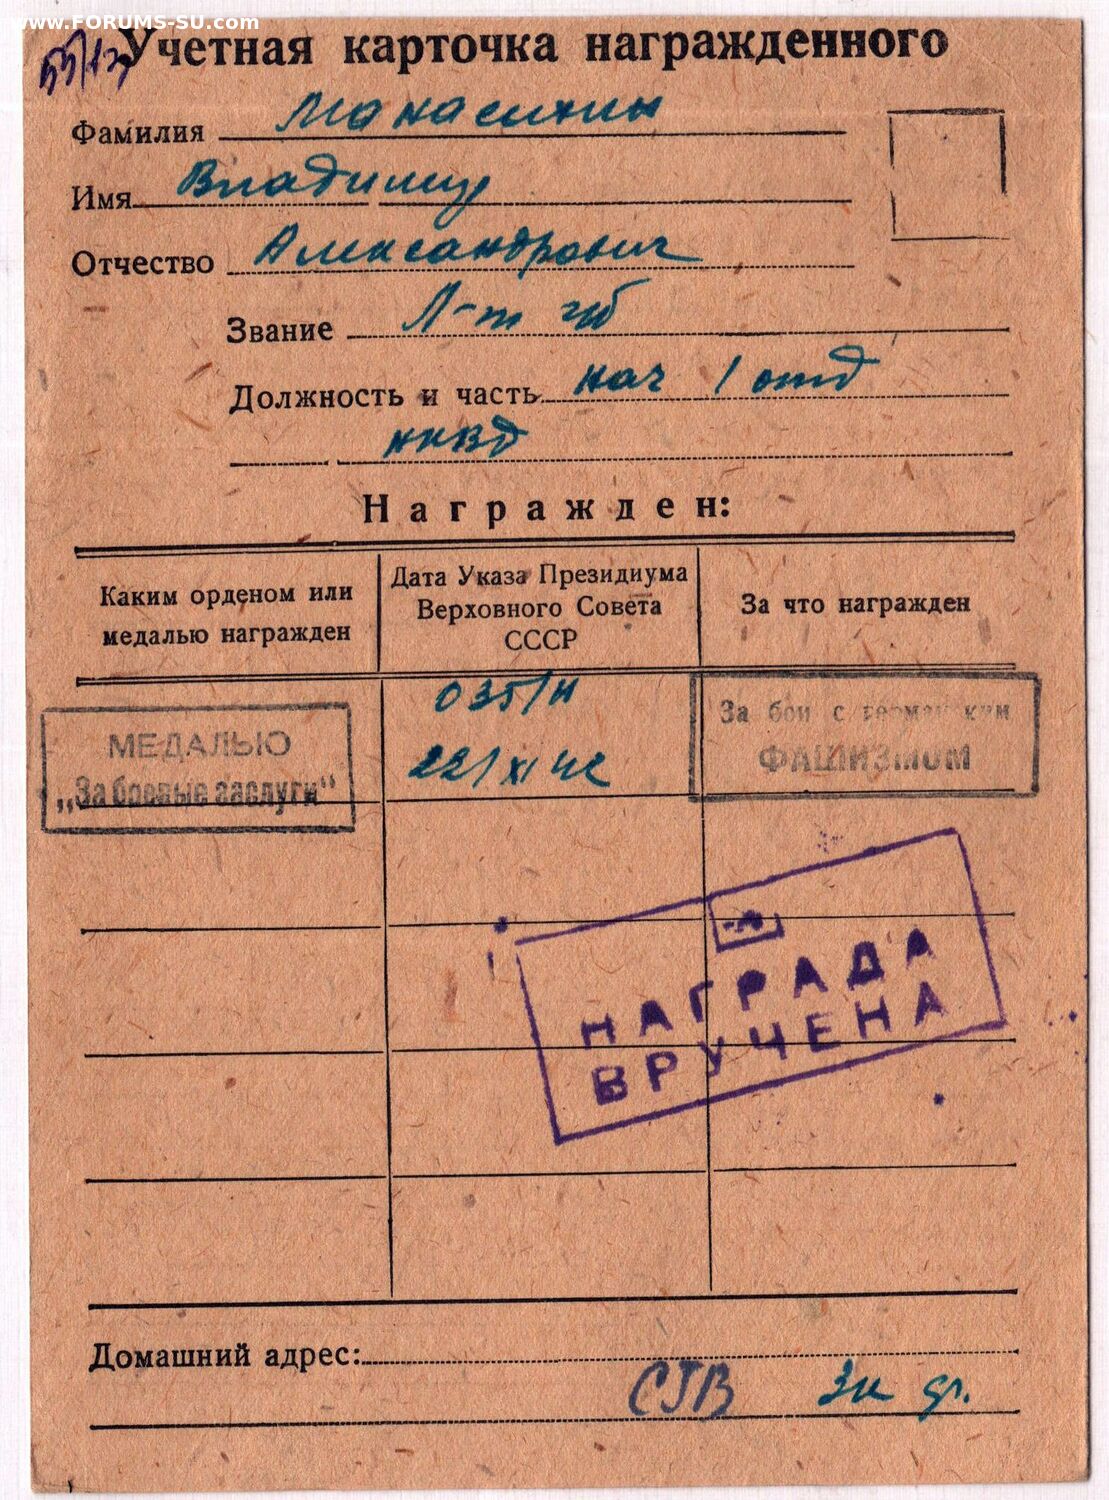 www.FORUMS-SU.com
Учетная карточка награжденного
Фамилия Манасихин
Имя Владимир
Отчество Александрович
Звание Л-т гб
Должность и часть нач 1 отд
НКВД
Награжден:
Каким орденом или медалью награжден
Дата Указа Президиума Верховного Совета СССР
За что награжден
МЕДАЛЬЮ
„За боевые заслуги“
035/н
22/XI 42
За бои с германским
ФАШИЗМОМ
НАГРАДА
ВРУЧЕНА
Домашний адрес:
СГВ